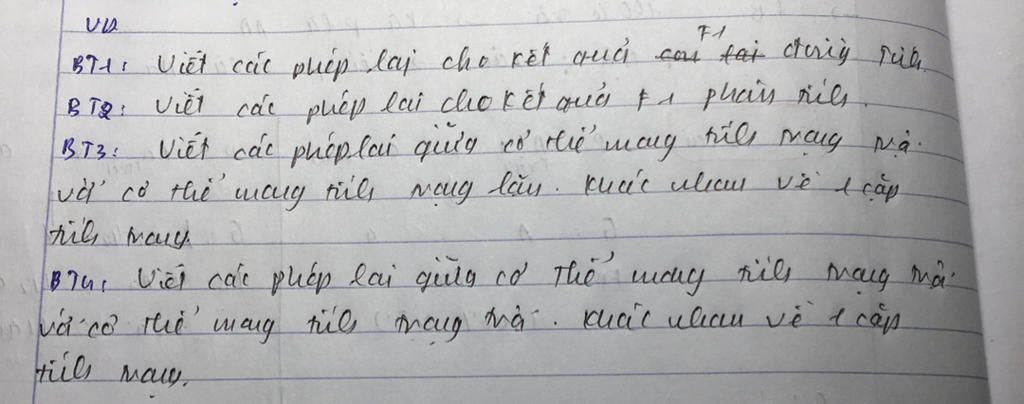 VD
BT1: Viết các phép lai cho kết quả con lai F1 đồng tính.
BT2: Viết các phép lai cho kết quả F1 phân tính.
BT3: Viết các phép lai giữa cơ thể mang tính trạng trội
với cơ thể mang tính trạng lặn. Khác nhau về 1 cặp
tính trạng.
BT4: Viết các phép lai giữa cơ thể mang tính trạng trội
với cơ thể mang tính trạng trội. Khác nhau về 1 cặp
tính trạng.